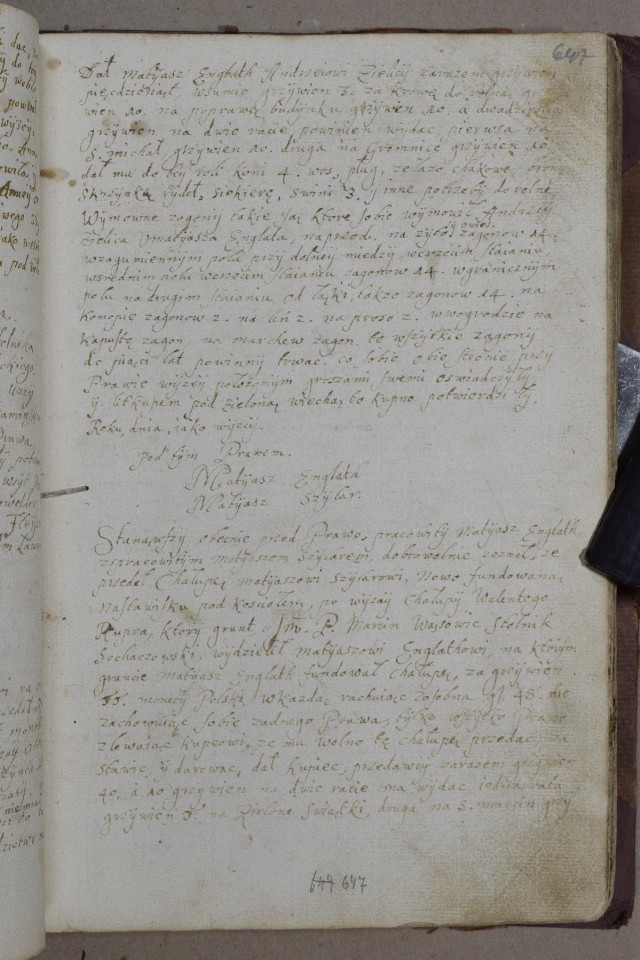 647
Dał Matyiasz Englath Andrzeiowi Zielicy zarazem grzywien
pięcdziesiąt, wsumie grzywien 3. za krowę do rolna, grzy
wien 10. na poprawę budynku grzywien 10. a dwadziescia
grzywien na dwie racie powinien wydac, pierwsa na
S. michał grzywien 10. druga na Gromnice grzywien 10,
dał mu do tey roli koni 4. wos, pług, zelazo
Skrzynkę rydel, siekierę, swini 3. y inne potrzeby do rolne
Wymowne zagony takie są, ktore sobie wymowił Andrzey
Zielica Umatyasza Englata, naprzod. na zyto y owies zagonow 14.
wzagumiennym polu przy dolney miedzy werszcum staianiu,
wsrednim polu staianiu zagonow 14. wgranicznym
polu na drugim staianiu od łąki, takze zagonow 14. na
konopie zagonow 2. na len 2. na proso 2. wwogrodzie na
kapustę zagon, na marchew zagon. te wszystkie zagony
do piąci lat powinny trwac. co sobie obie stronie przy
Prawie wyzey położonym groszami swemi oswiadczyły
y litkupem pod zieloną wiechą, to kupno potwierdziły.
Roku, dnia, iako wyzey.
pod tym Prawem.
Matyiasz Englath
Matyiasz Szylar.
Stanąwszy obecnie przed Prawo, pracowity Matyasz Englath,
zspracowitym matyaszem Szylarem, dobrowolnie zeznał, ze
przedał Chałupę, matyaszowi szylarowi, Nowo fundowaną,
nastawisku pod kosciołem, po wyzay Chałupy Walentego
Rupra, ktory grunt Jm. P. Marcin Wąsowic Stolnik
Sochaczowski, wydzielił matyaszowi Englathowi, na ktorym
gruncie Matyasz Englath fundował Chałupę, za grzywien
monety Polski, wkazdą rachuiąc zołotha gł. 48. nie
zachowuiąc sobie zadnego Prawa, tylko wszytko Prawo
zlewaiąc kupcowi, ze mu wolno tę chałupę przedac, za
stawic, y darowac, dał kupiec, przedawcy zarazem grzywien
40, a 10 grzywien na dwie racie ma wydac iedna rata
grzywien 5. na Zielone Swiątki, druga na S. marcin grzy
644 647